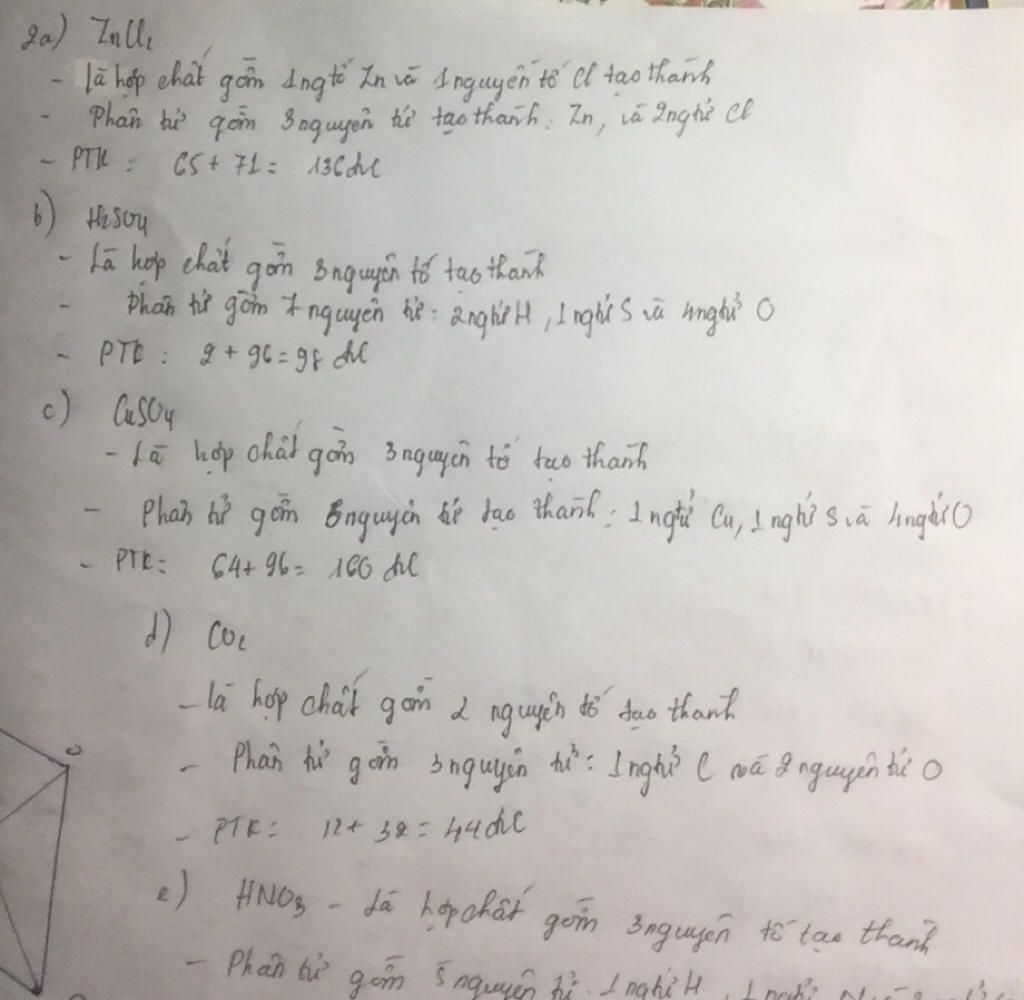 2a) ZnCl₂
- là hợp chất gồm 1 ng tố Zn và 1 nguyên tố Cl tạo thành
- Phân tử gồm 3 nguyên tử tạo thành: Zn, và 2 ng tử Cl
- PTK : 65 + 71 = 136 đvC
b) H₂SO₄
- Là hợp chất gồm 3 nguyên tố tạo thành
- phân tử gồm 7 nguyên tử : 2 ng tử H , 1 ng tử S và 4 ng tử O
- PTK : 2 + 96 = 98 đvC
c) CuSO₄
- Là hợp chất gồm 3 nguyên tố tạo thành
- Phân tử gồm 6 nguyên tử tạo thành : 1 ng tử Cu, 1 ng tử S và 4 ng tử O
- PTK = 64 + 96 = 160 đvC
d) CO₂
- là hợp chất gồm 2 nguyên tố tạo thành
- Phân tử gồm 3 nguyên tử : 1 ng tử C và 2 nguyên tử O
- PTK = 12 + 32 = 44 đvC
e) HNO₃ - Là hợp chất gồm 3 nguyên tố tạo thành
- Phân tử gồm 5 nguyên tử . 1 ng tử H